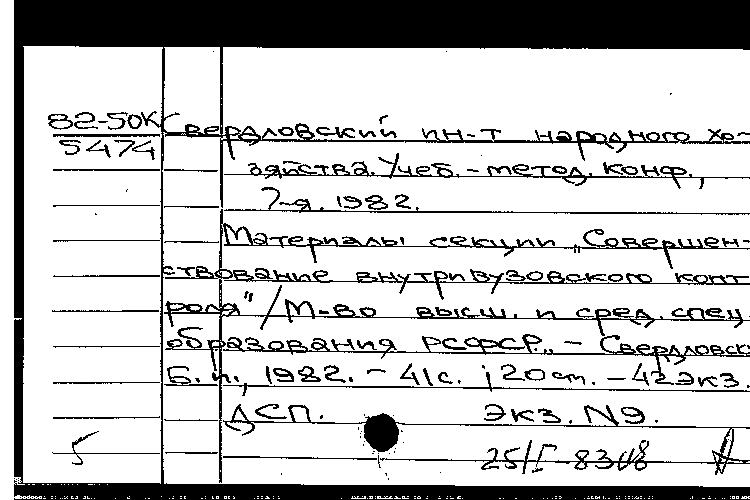 82-50К Свердловский ин-т народного хо-
5474 зяйства. Учеб.-метод. конф.,
7-я. 1982.
Материалы секции „Совершен-
ствование внутривузовского конт-
роля" / М-во высш. и сред. спец.
образования РСФСР. - Свердловск:
Б. и., 1982. - 41 с.; 20 см. - 42 экз.
ДСП. Экз. N9.
5 25/I-83